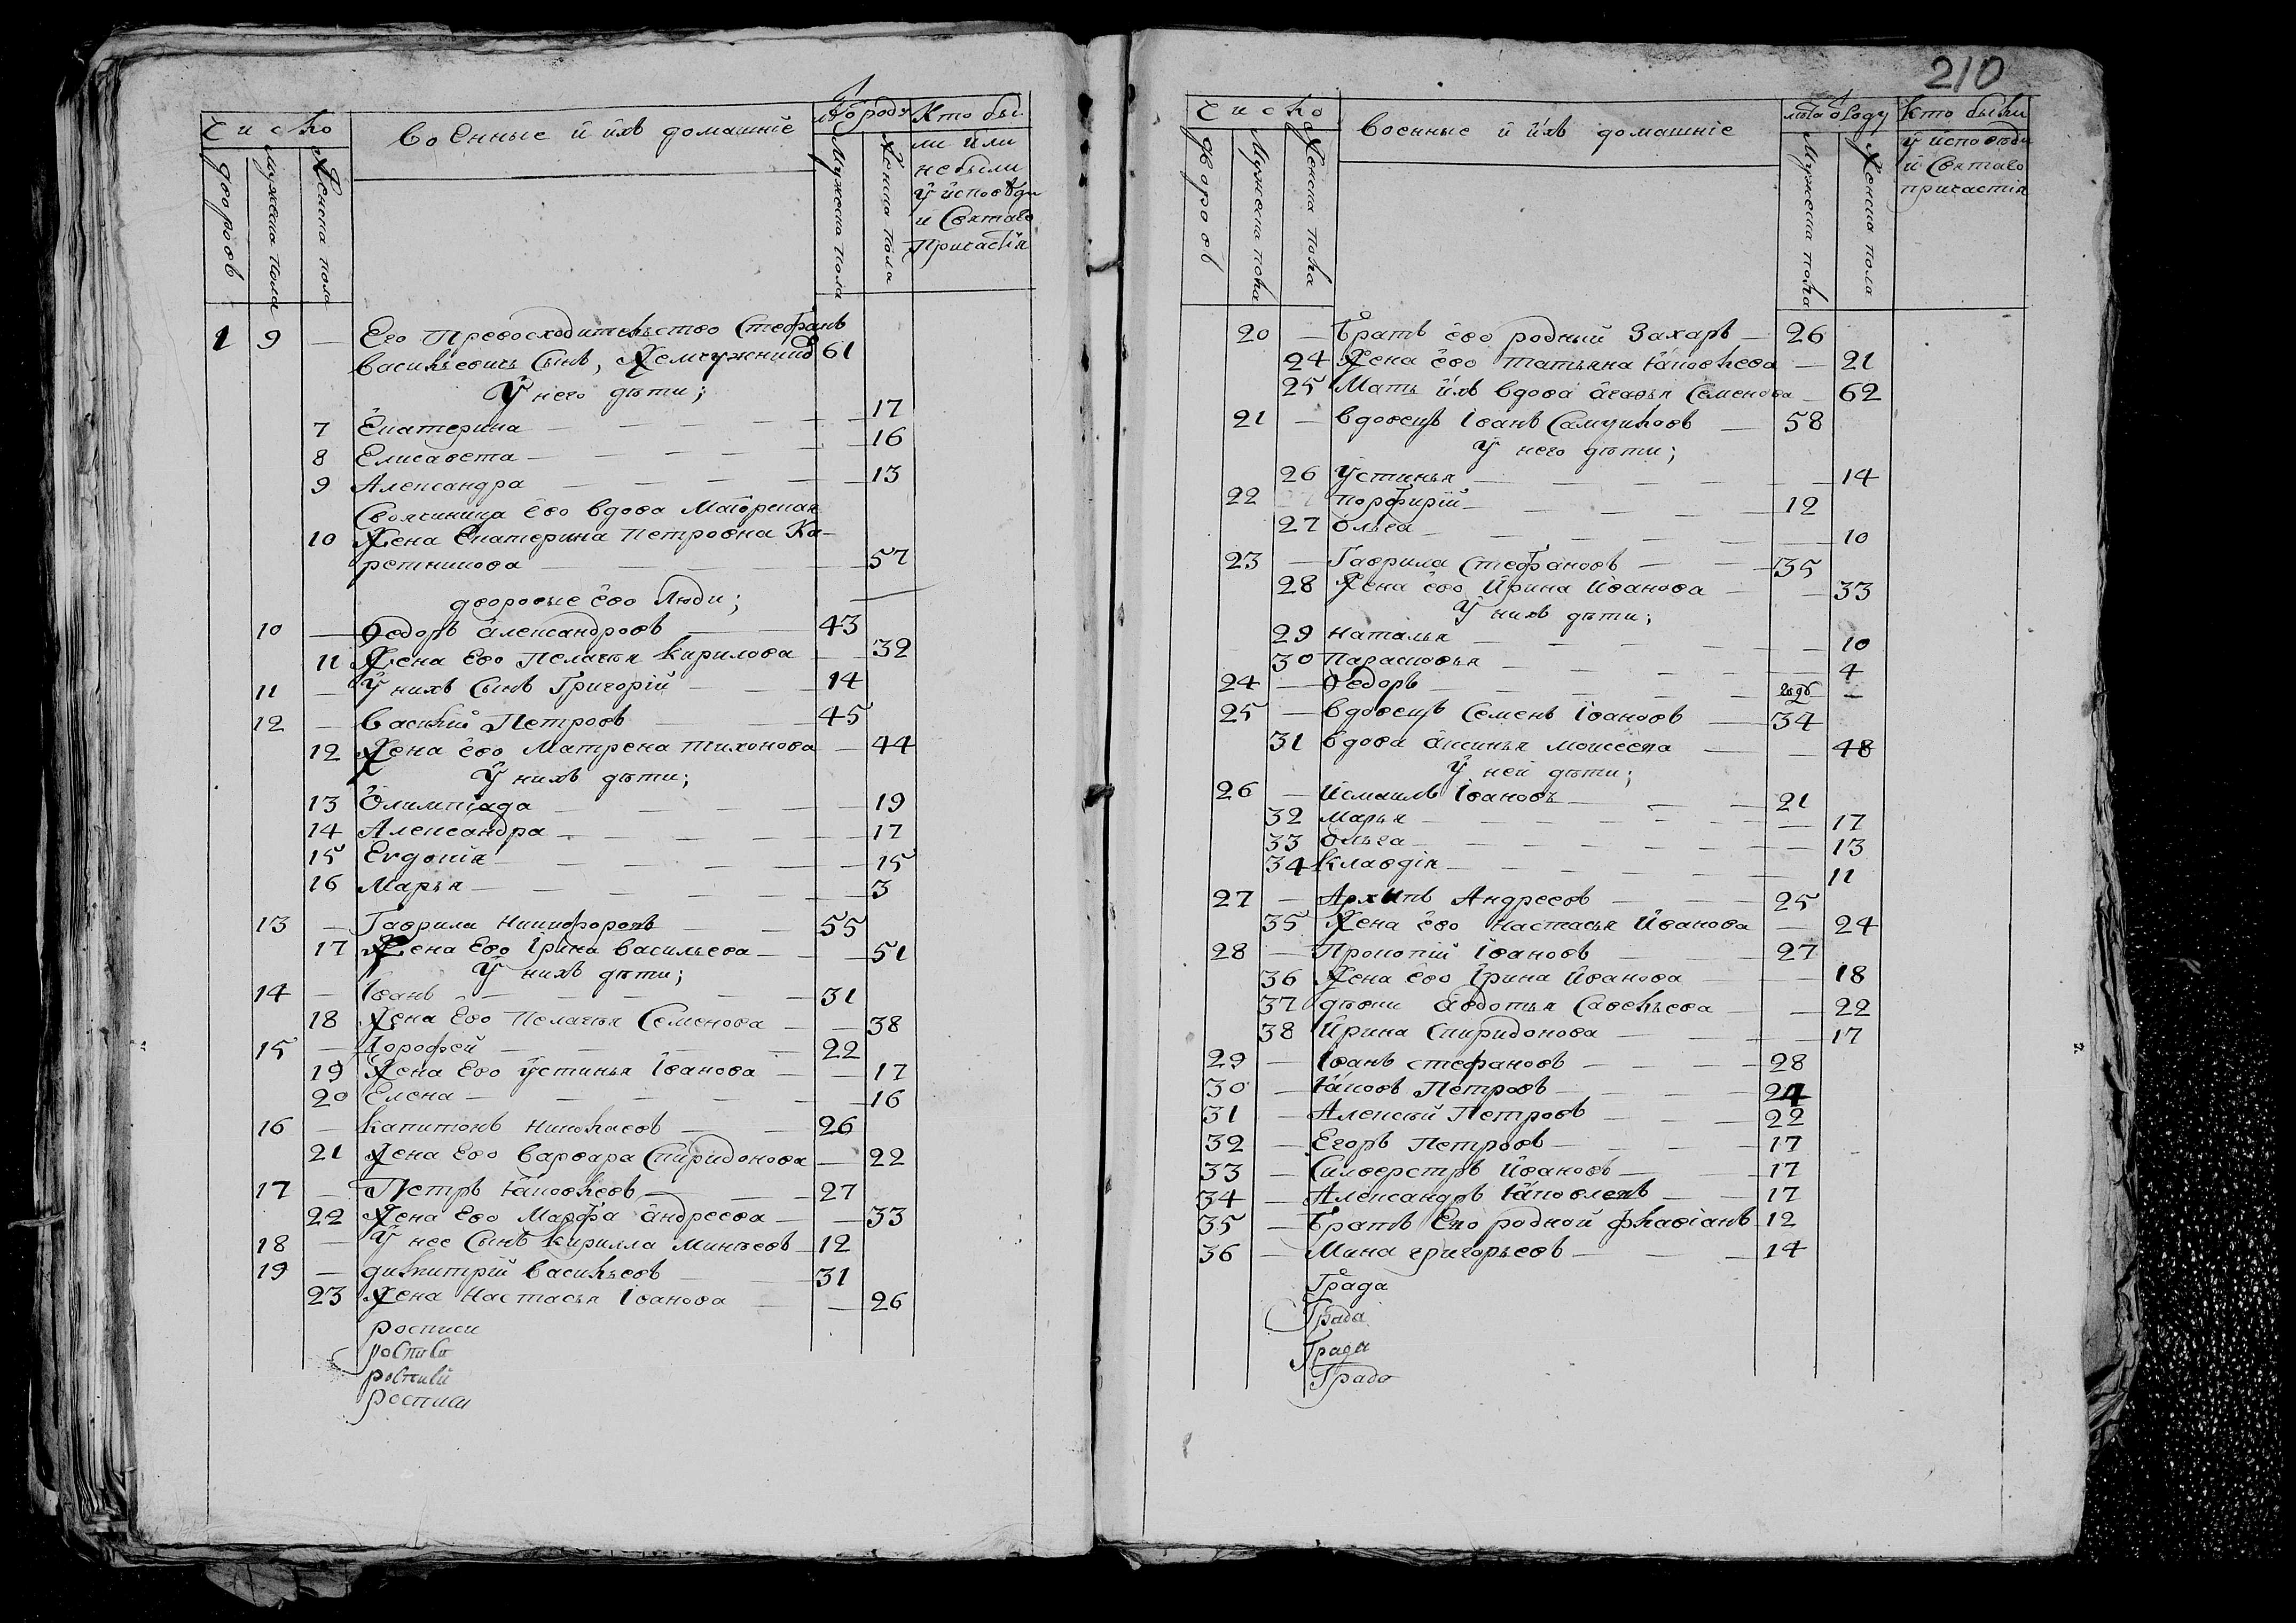 число
Военные й ихъ домашніе
Кто бы
ли или
небыли
ў исповѣди
и Святаго
Причастія
дворовъ
Мужеска пола
Женска пола
Мужеска пола
Женска пола
1 9 — Его Превосходительство Стефанъ
Васильевичь Сынъ, Жемчужниковъ 61
Ў него дѣти;
7 Екатерина — 17
8 Елисавета — 16
9 Александра — 13
Своячиница его вдова Маіорская
10 Жена Екатерина Петровна Ка-
ретникова — 57
дворовые его Люди;
10 — Ѳедоръ Александровъ — 43
11 Жена Его Пелагѣя Кирилова — 32
11 — Ў нихъ Сынъ Григорій — 14
12 — Василий Петровъ — 45
12 Жена его Матрена Тихонова — 44
Ў нихъ дѣти;
13 Олимпіада — 19
14 Александра — 17
15 Евдокия — 15
16 Марья — 3
13 — Гаврила Никифоровъ — 55
17 Жена Его Ірина Васильева — 51
Ў нихъ дѣти;
14 — Іванъ — 31
18 Жена Его Пелагѣя Семенова — 38
15 — Дорофей — 22
19 Жена Его Ўстинья Іванова — 17
20 Елена — 16
16 — Капитонъ Николаевъ — 26
21 Жена Его Варвара Спиридонова — 22
17 — Петръ Яковлевъ — 27
22 Жена Его Марфа Андреева — 33
18 — Ў нее Сынъ Кирилла Минѣевъ — 12
19 — Димитрій Васильевъ — 31
23 Жена Настасья Іванова — 26
росписи
росписи
росписи
210
число
Военные й ихъ домашніе
лѣта ѿ роду
Кто были
ў исповѣди
й Святаго
причастія
дворовъ
Мужеска пола
Женска пола
Мужеска пола
Женска пола
20 — Братъ его родный Захаръ — 26
24 Жена его Татьяна Яковлева — 21
25 Мать ихъ вдова Агафья Семенова — 62
21 — Вдовецъ Іванъ Самуиловъ — 58
Ў него дѣти;
26 Ўстинья — 14
22 Порфирій — 12
27 Ольга — 10
23 — Гаврила Стефановъ — 35
28 Жена его Ирина Иванова — 33
Ў нихъ дѣти;
29 Наталья — 10
30 Парасковья — 4
24 — Ѳедоръ — годъ —
25 — Вдовецъ Семенъ Івановъ — 34
31 Вдова Аксинья Моисеева — 48
Ў ней дѣти;
26 — Исмаилъ Івановъ — 21
32 Марья — 17
33 Ольга — 13
34 Клавдія — 11
27 — Архипъ Андреевъ — 25
35 Жена его Настасья Иванова — 24
28 — Прокопій Івановъ — 27
36 Жена его Ірина Иванова — 18
37 дѣвки Авдотья Савельева — 22
38 Ирина Спиридонова — 17
29 — Іванъ Стефановъ — 28
30 — Яковъ Петровъ — 24
31 — Алексѣй Петровъ — 22
32 — Егоръ Петровъ — 17
33 — Силверстръ Ивановъ — 17
34 — Александръ Яковлевъ — 17
35 — Братъ Его родной Флавіанъ — 12
36 — Мина Григорьевъ — 14
Града
Града
Града
Града